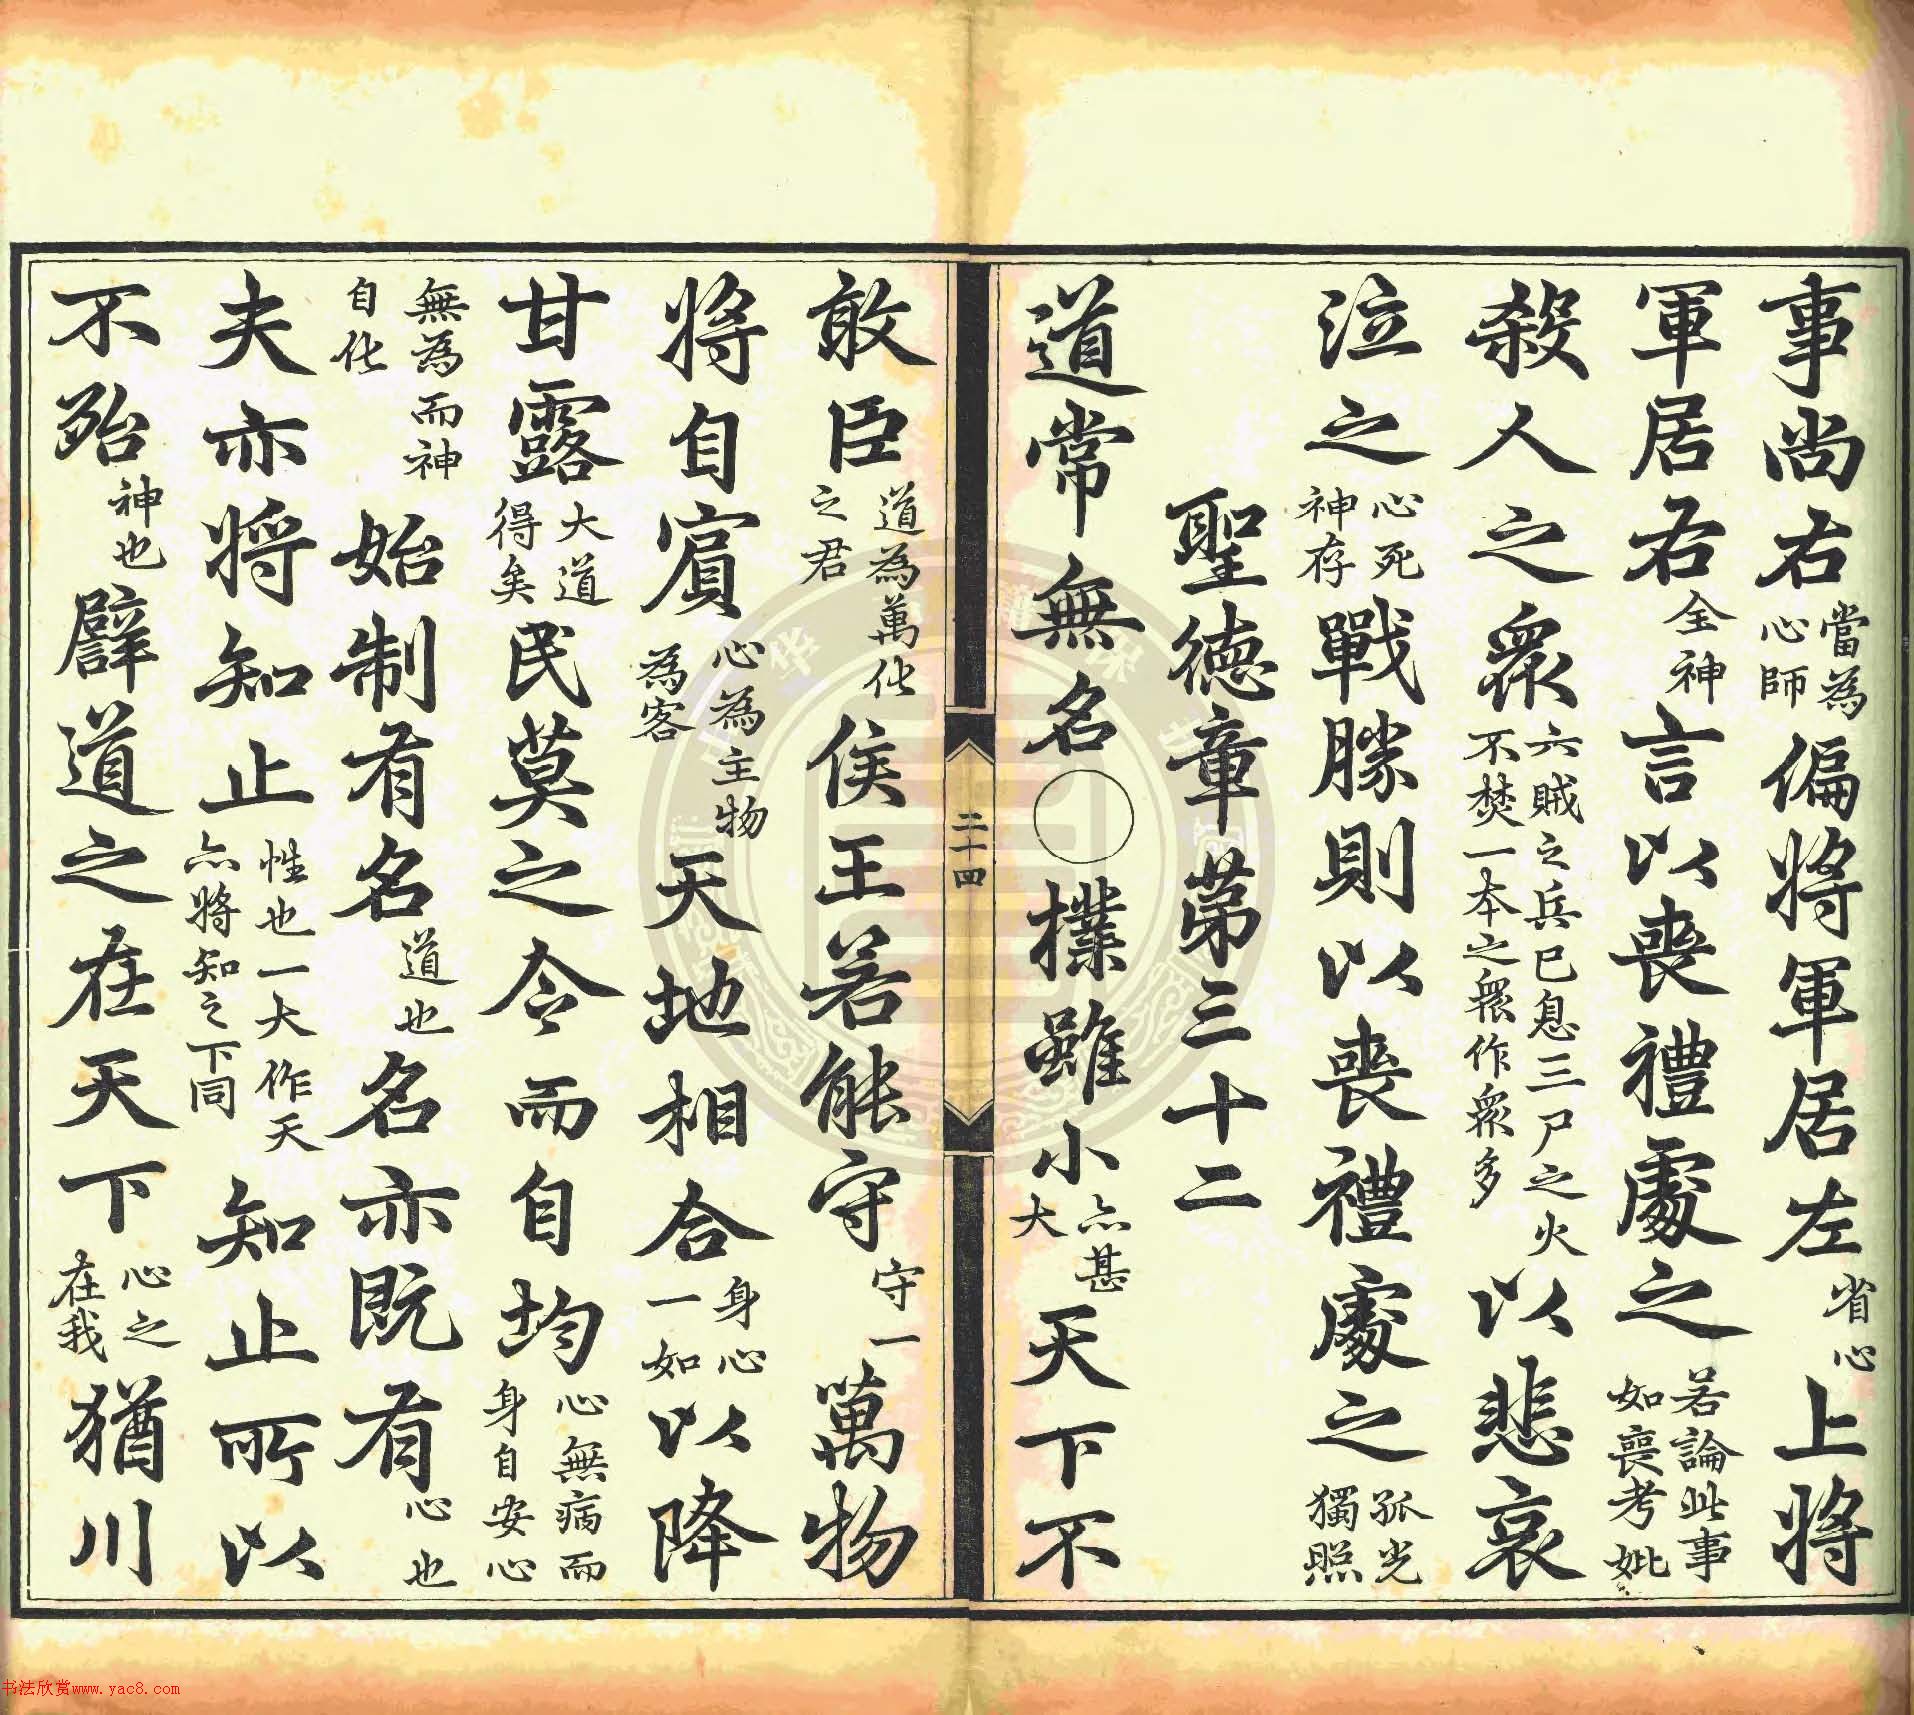 事尚右當為心師偏將軍居左省心上將
軍居右全神言以喪禮處之若論此事如喪考妣
殺人之衆六賊之兵已息三尸之火不焚一本之衆作衆多以悲哀
泣之心死神存戰勝則以喪禮處之孤光獨照
聖德章第三十二
道常無名○樸雖小亦甚大天下不
二十四
敢臣道為萬化之君侯王若能守守一萬物
將自賓心為主物為客天地相合身心一如以降
甘露大道得矣民莫之令而自均心無病而身自安心
無為而神自化始制有名道也名亦既有心也
夫亦將知止性也一大作天亦將知之下同知止所以
不殆神也譬道之在天下心之在我猶川
书法欣赏www.yac8.com